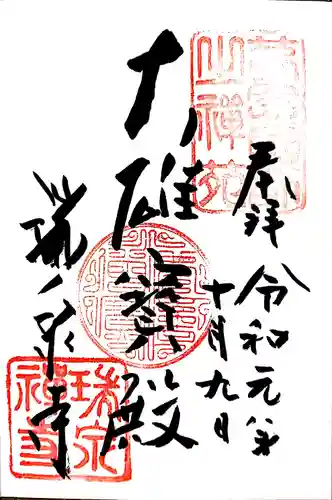 奉拝
令和元年
十月九日
大雄寶殿
瑞泉寺
瑞泉禅寺